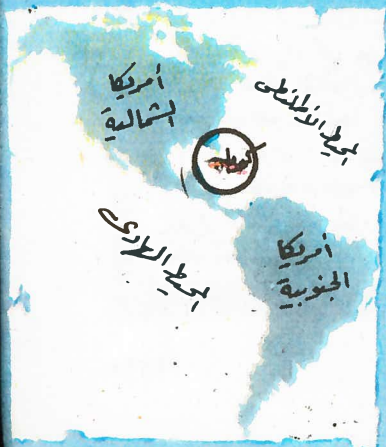 أمريكا
الشمالية
المحيط الأطلنطى
المحيط الهادى
أمريكا
الجنوبية